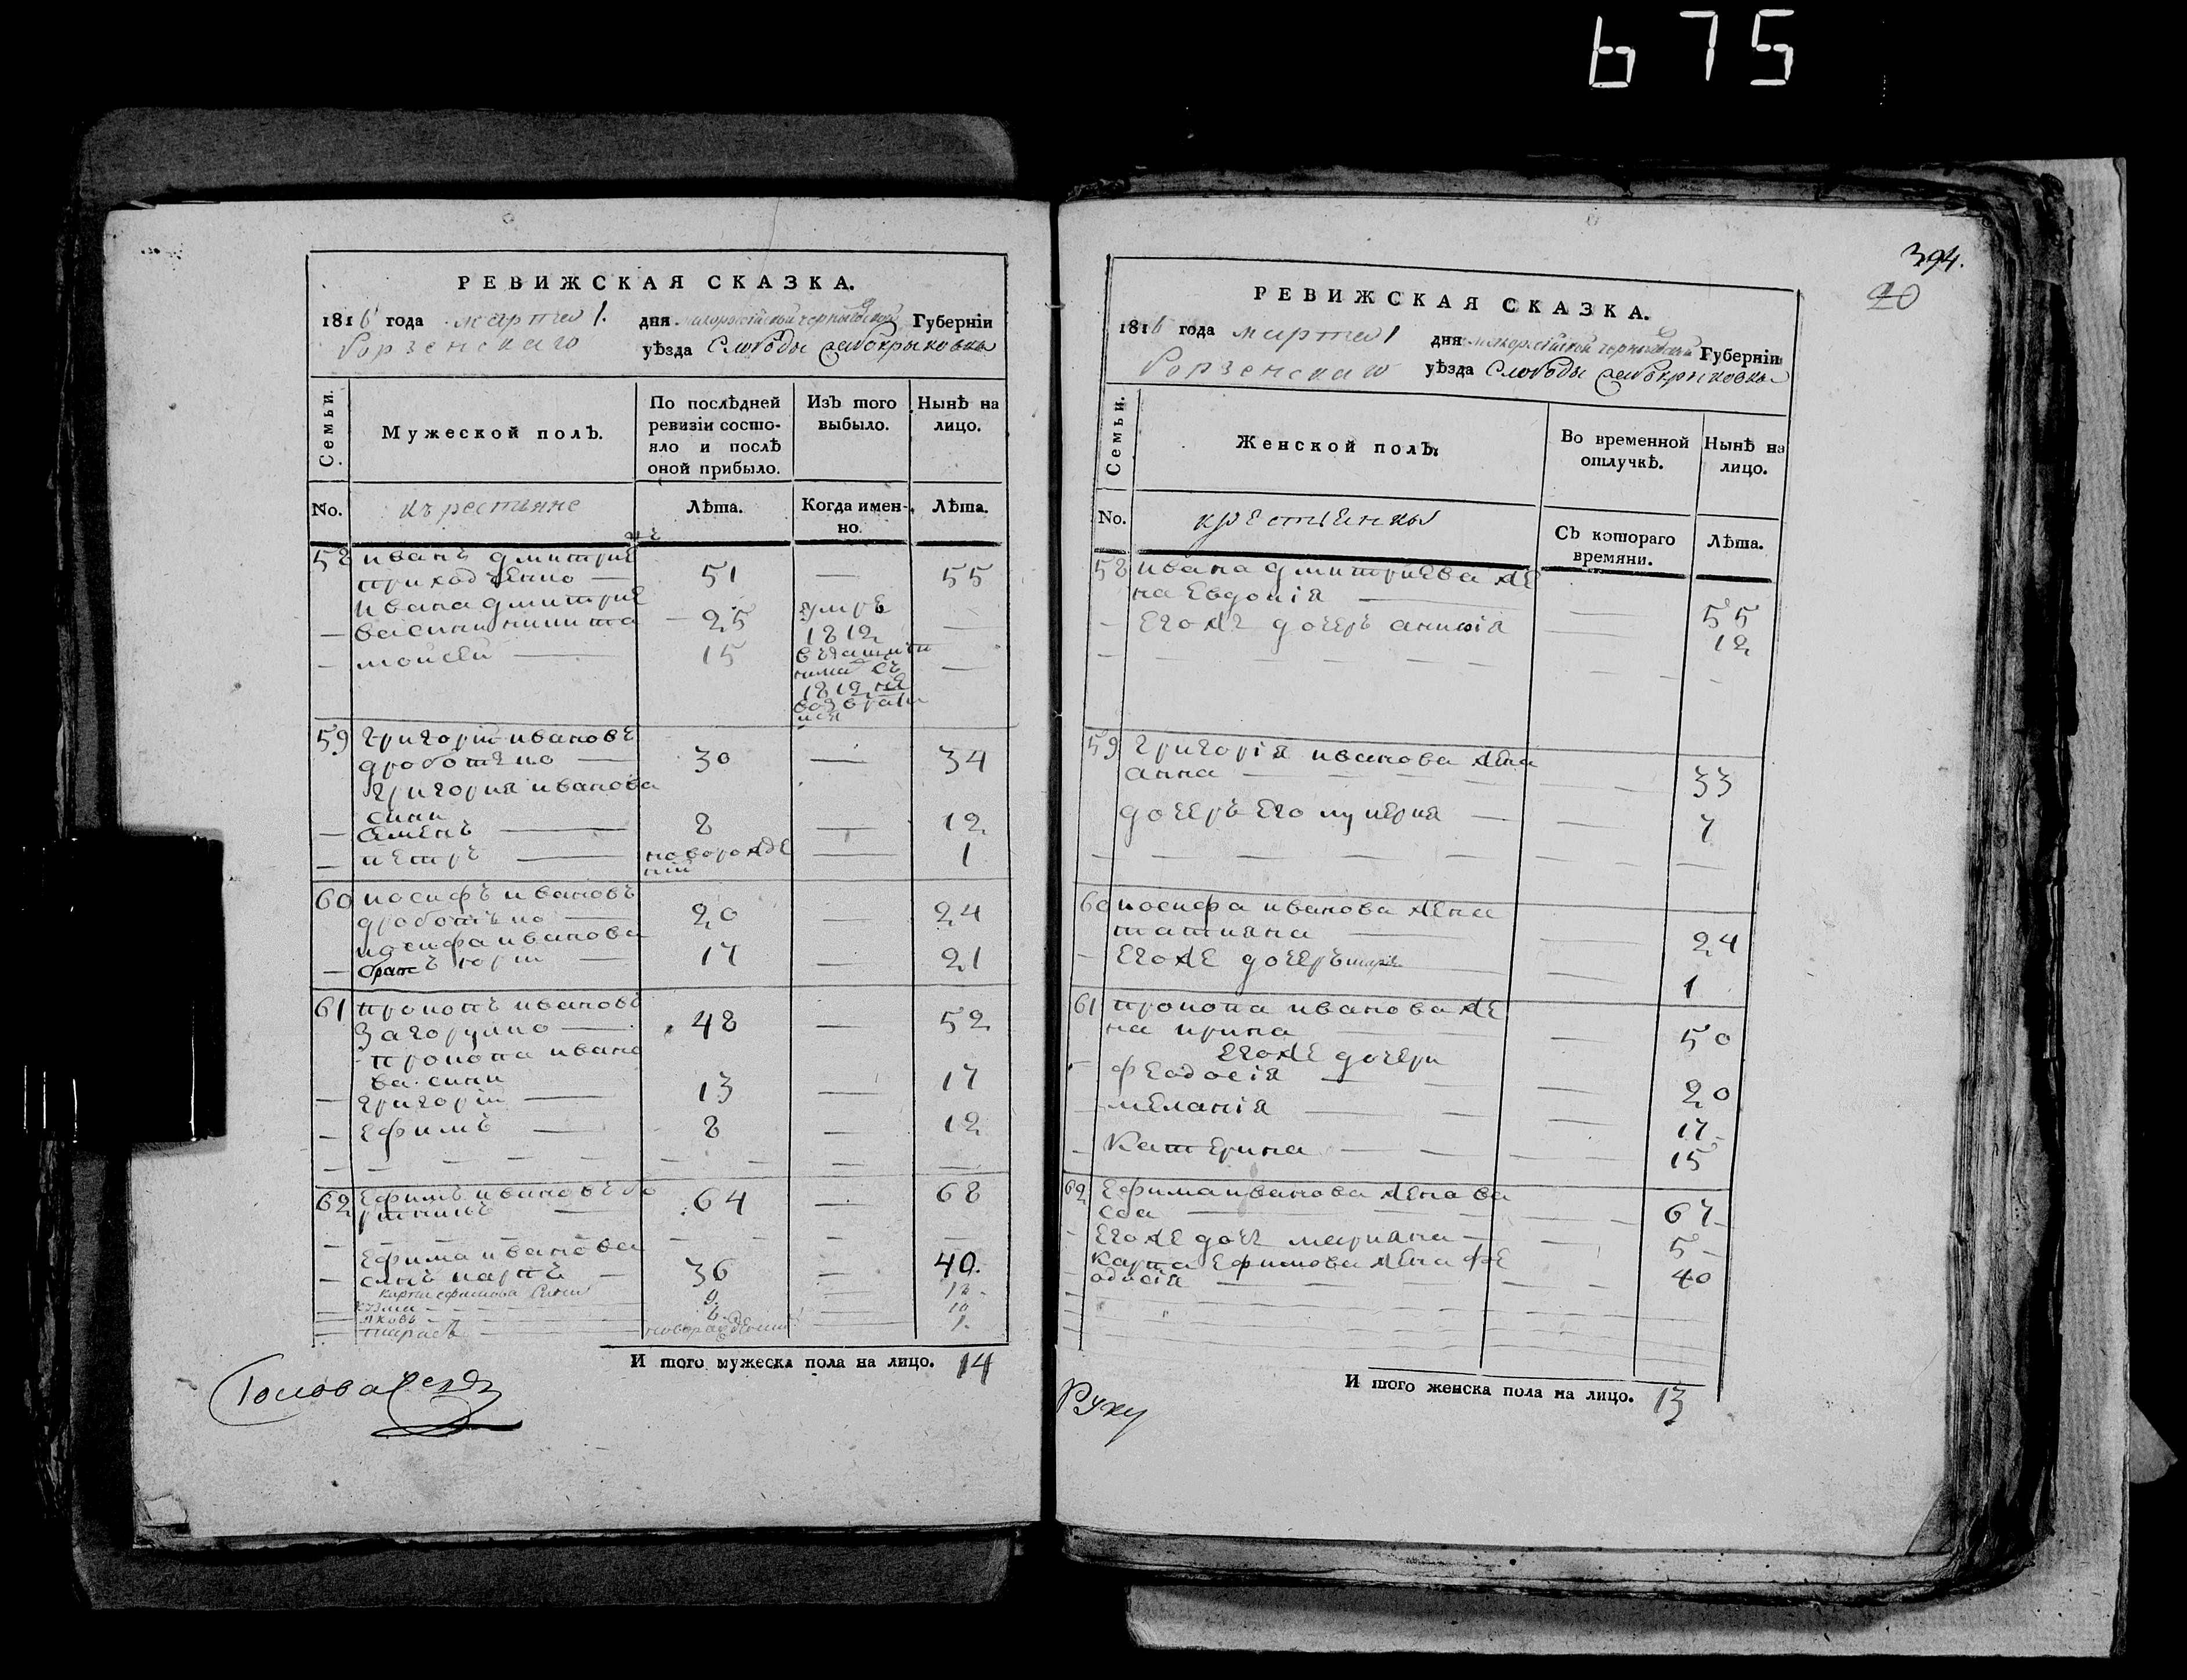 675
РЕВИЖСКАЯ СКАЗКА.
1816 года марта 1. дня малоросiйской черниговской Губернiи
Борзенскаго уѣзда Слободы
Семьи.
Мужеской полъ.
По послѣдней ревизiи состо-
яло и послѣ
оной прибыло.
Изъ того
выбыло.
Нынѣ на
лицо.
No.
кърестьяне
Лѣта.
Когда имен-
но.
Лѣта.
58 иванъ дмитрие
приходченко — 51 — 55
ивана дмитрие
— ва сини никита — 25 умре 1812 —
— мойсей — 15
1812 не
возврати
лся —
59 григорiй ивановъ
дроботѣко — 30 — 34
григория иванова
сини
— семенъ — 8 — 12
— петръ — новорожде
нiй — 1
60 иосифъ ивановъ
дроботѣко — 20 — 24
иосифа иванова
— братъ юрiй — 17 — 21
61 прокопъ ивановъ
загорулко — 48 — 52
прокопа ивано
ва сини
— григорiй — 13 — 17
— ефимъ — 8 — 12
62 ефимъ ивановъ
64 — 68
ефима иванова
— синъ карпъ — 36 — 40.
карпа ефимова сини
— кузма — 9 — 13
— яковъ — 6. — 10
— тарасъ — новорожденнiй — 1.
И того мужеска пола на лицо. 14
Голова
394.
20
РЕВИЖСКАЯ СКАЗКА.
1816 года марта 1 дня малоросiйской черниговской Губернiи
Борзенскаго уѣзда Слободы
Семьи.
Женской полъ.
Во временной
отлучкѣ.
Нынѣ на
лицо.
No.
крестьянки
Съ котораго
времяни.
Лѣта.
58 ивана дмитриева же
на евдокiя — 55
— его же дочеръ анисiя — 12
59 григорiя иванова жена
анна — 33
дочеръ его лукерия — 7
60 иосифа иванова жена
татияна — 24
— его же дочеръ марiя — 1
61 прокопа иванова же
на ирина — 50
его же дочери
— феодосiя — 20
— меланiя — 17
— катерина — 15
62 ефима иванова жена ва
сса — 67
— его же доч марияна — 5
карпа ефимова жена фе
одосiя — 40
И того женска пола на лицо. 13
Руку